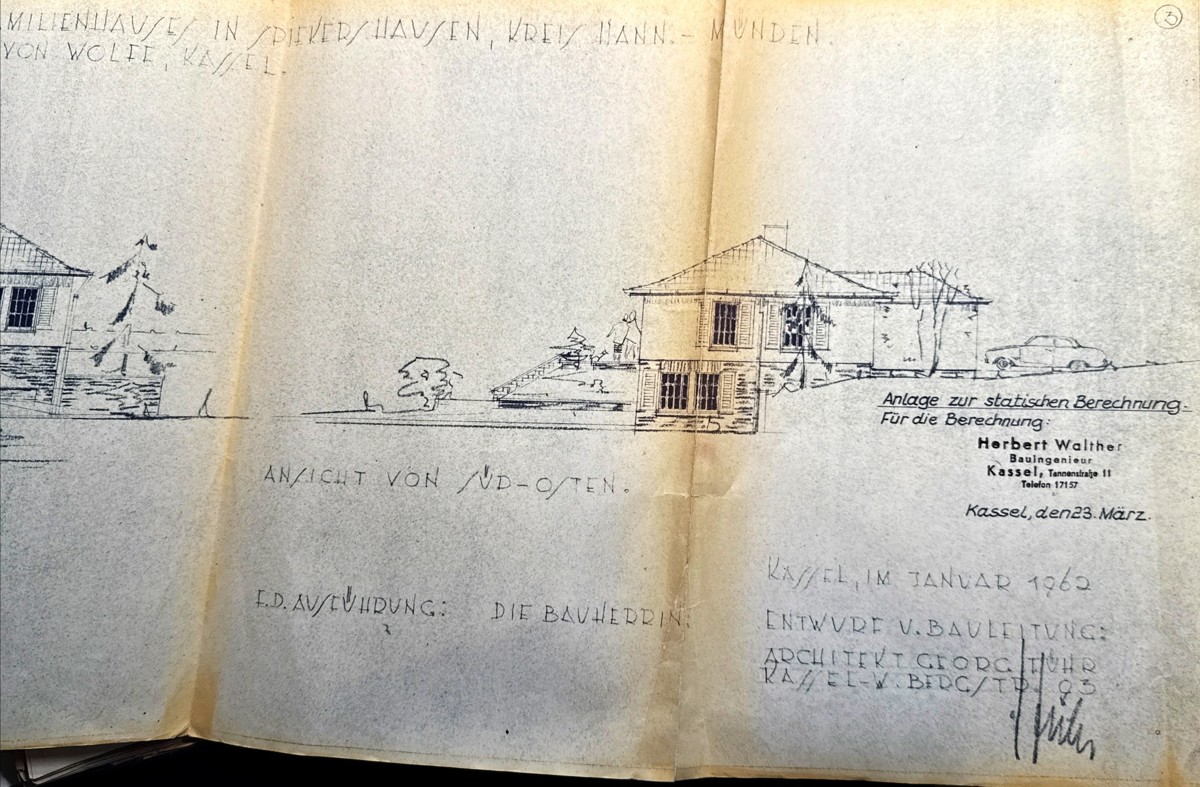 MILIENHAUSES IN SPIEKERSHAUSEN, KREIS HANN.- MÜNDEN.
VON WOLFF, KASSEL.
3
Anlage zur statischen Berechnung.
Für die Berechnung:
Herbert Walther
Bauingenieur
Kassel, Tannenstraße 11
Telefon 17157
Kassel, den 23. März.
ANSICHT VON SÜD-OSTEN.
F.D. AUSFÜHRUNG: DIE BAUHERRIN:
KASSEL, IM JANUAR 1962
ENTWURF U. BAULEITUNG:
ARCHITEKT GEORG
KASSEL-W. BERGSTR. 93